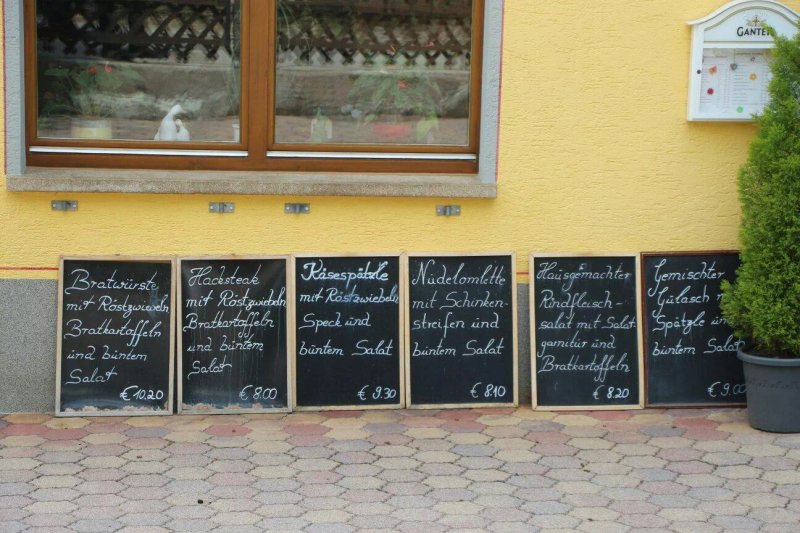 GANTER
Bratwürste
mit Röstzwiebeln
Bratkartoffeln
und buntem
Salat
€ 10.20
Hacksteak
mit Röstzwiebeln
Bratkartoffeln
und buntem
Salat
€ 8.00
Käsespätzle
mit Röstzwiebeln
Speck und
buntem Salat
€ 9.30
Nudelomlette
mit Schinken-
streifen und
buntem Salat
€ 8.10
Hausgemachter
Rindfleisch-
salat mit Salat
garnitur und
Bratkartoffeln
€ 8.20
Gemischter
Gulasch
Spätzle
buntem Salat
€ 9.00